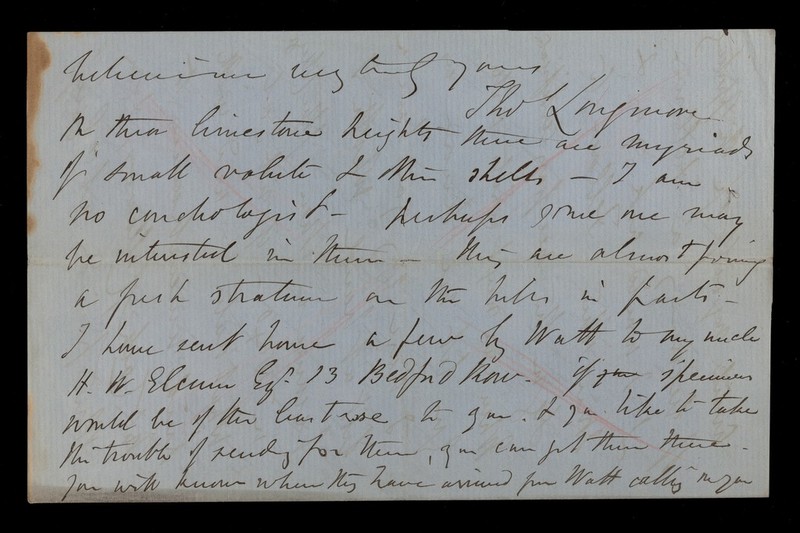 believe me very truly yours
Tho Longmore
On these limestone heights there are myriads
of small volute & other shells – I am
no conchologist – perhaps some one may
be interested in them – they are almost forming
a fresh stratum on the hills in parts –
I have sent home a few by Watt to my uncle
H. W. Elcum Esqr. 13 Bedford Row. If specimens
would be of the least use to you & you like to take
the trouble of sending for them, you can get them there –
You will know when they have arrived from Watt calling on you